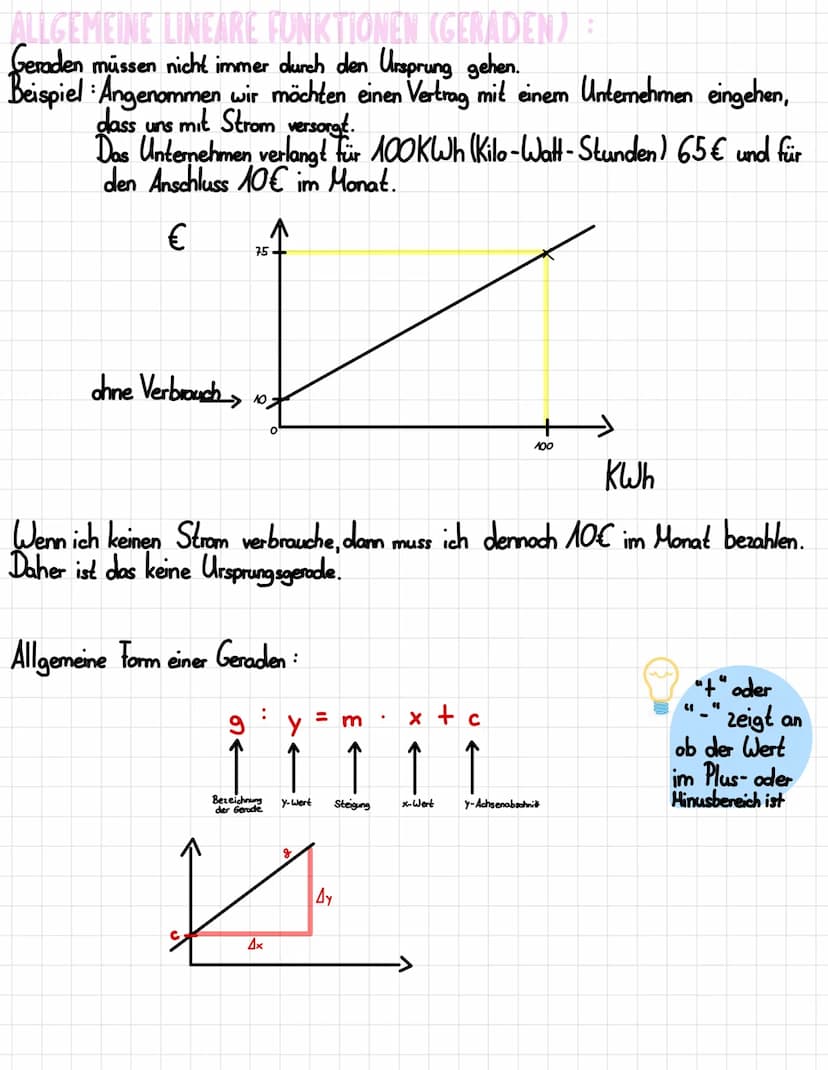 ALLGEMEINE LINEARE FUNKTIONEN (GERADEN) :
Geraden müssen nicht immer durch den Ursprung gehen.
Beispiel : Angenommen wir möchten einen Vertrag mit einem Unternehmen eingehen,
dass uns mit Strom versorgt.
Das Unternehmen verlangt für 100KWh (Kilo-Watt-Stunden) 65€ und für
den Anschluss 10€ im Monat.
€
75
ohne Verbrauch
10
0
100
KWh
Wenn ich keinen Strom verbrauche, dann muss ich dennoch 10€ im Monat bezahlen.
Daher ist das keine Ursprungsgerade.
Allgemeine Form einer Geraden :
g : y = m · x + c
Bezeichnung der Gerade
y-Wert
Steigung
x-Wert
y-Achsenabschnitt
"+" oder
"-" zeigt an
ob der Wert
im Plus- oder
Minusbereich ist
g
Δy
c
Δx